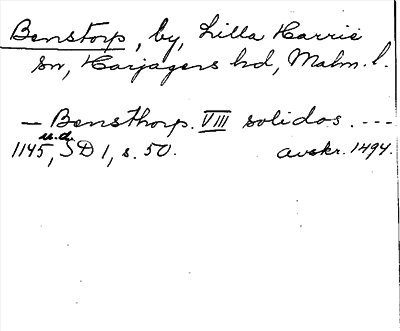 Benstorp, by, Lilla Harrie
sn, Harjagers hd, Malm. l.
— Bensthorp. VIII solidos. ---
u.d.
1145, SD 1, s. 50. avskr. 1494.